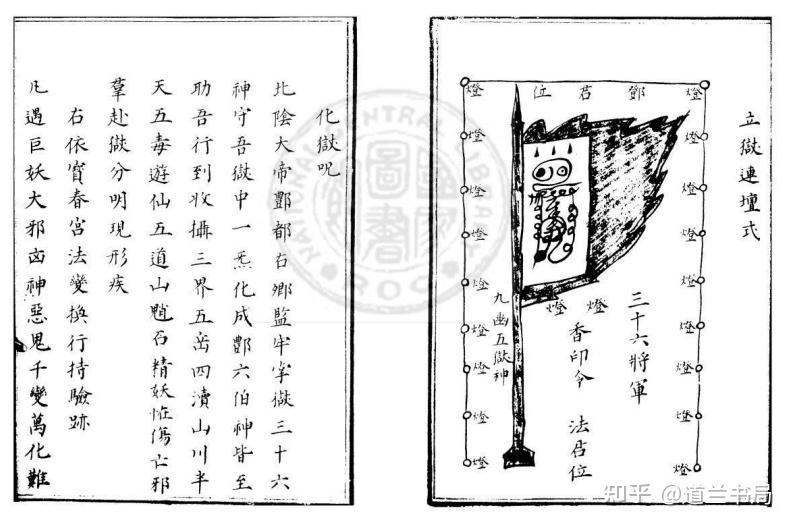 立獄連壇式
燈 鄧 君 位 燈
燈
燈
燈
燈
燈
燈
燈
燈
三十六將軍
燈 燈
香印令 法君位
九幽五獄神
燈
燈
燈
燈
燈
燈
燈
燈
化獄呪
北陰大帝酆都右鄉監牢宰獄三十六
神守吾獄中一炁化成酆六伯神皆至
助吾行到收攝三界五岳四瀆山川半
天五毒遊仙五道山魈石精妖恠傷亡邪
羣赴獄分明現形疾
右依寶春宮法變換行持驗跡
凡遇巨妖大邪凶神惡鬼千變萬化難
NATIONAL CENTRAL LIBRARY
ROC
國家圖書館
知乎 @道兰书局